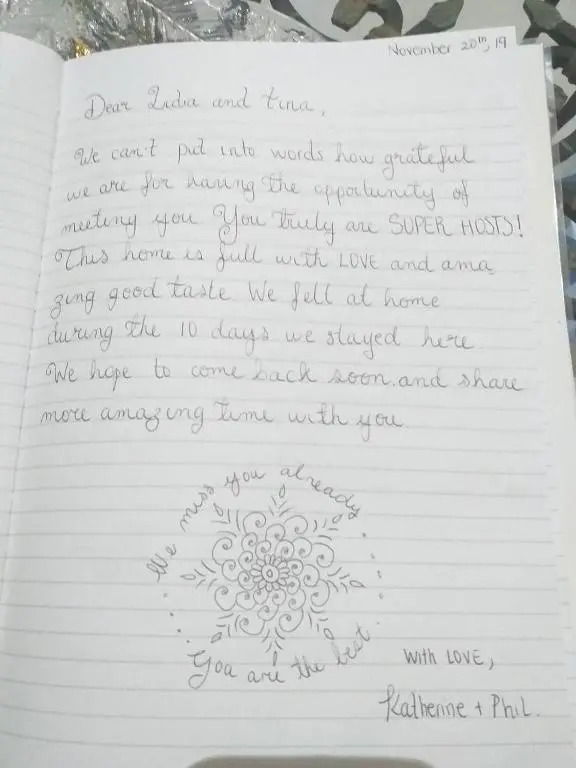 November 20th, 19
Dear Lidia and Tina,
We can't put into words how grateful
we are for having the opportunity of
meeting you You truly are SUPER HOSTS!
This home is full with LOVE and ama
zing good taste We fell at home
during the 10 days we stayed here
We hope to come back soon.and share
more amazing time with you.
We miss you already
You are the best
With LOVE,
Katherine + Phil.